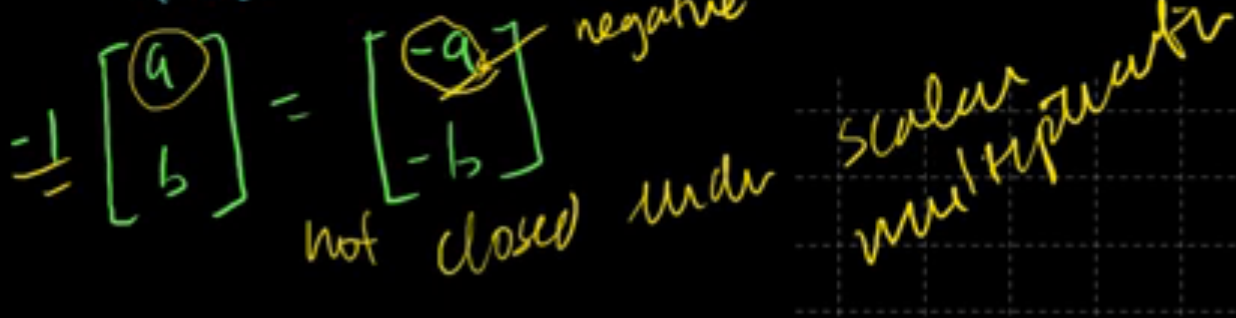 -1 [a b] = [-a -b] negative
not closed under scalar
multiplication